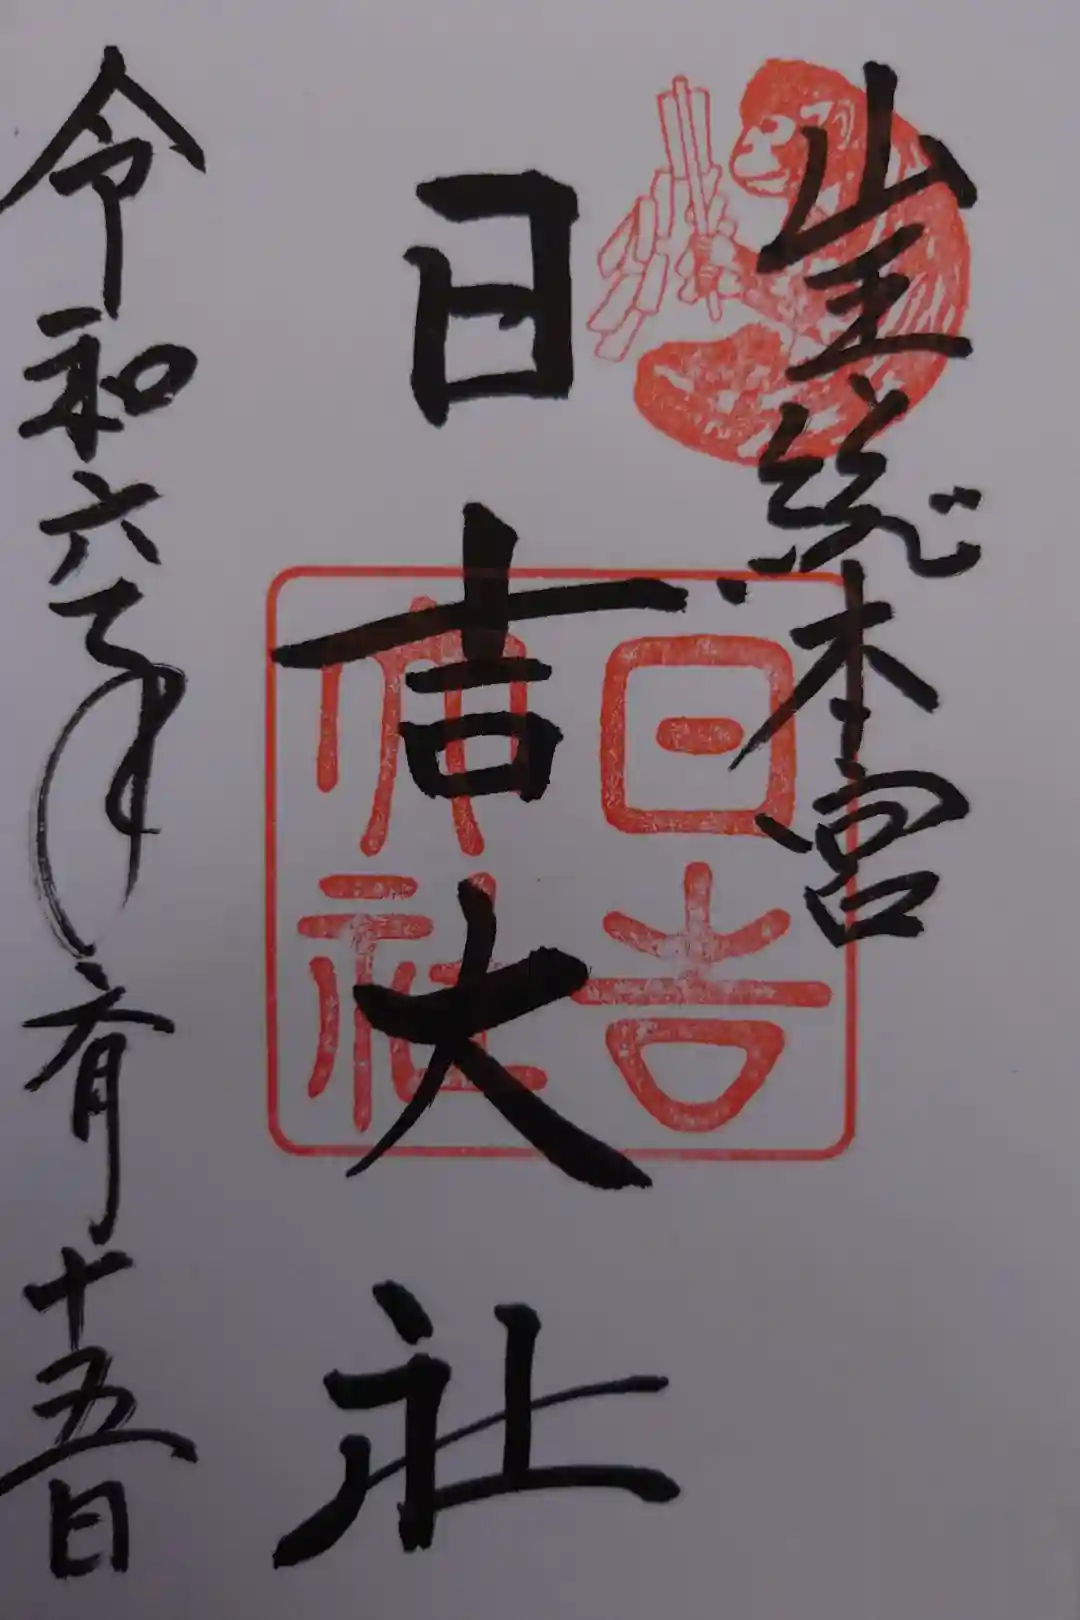 山王総本宮
日吉大社
日吉
大社
令和六年六月十五日